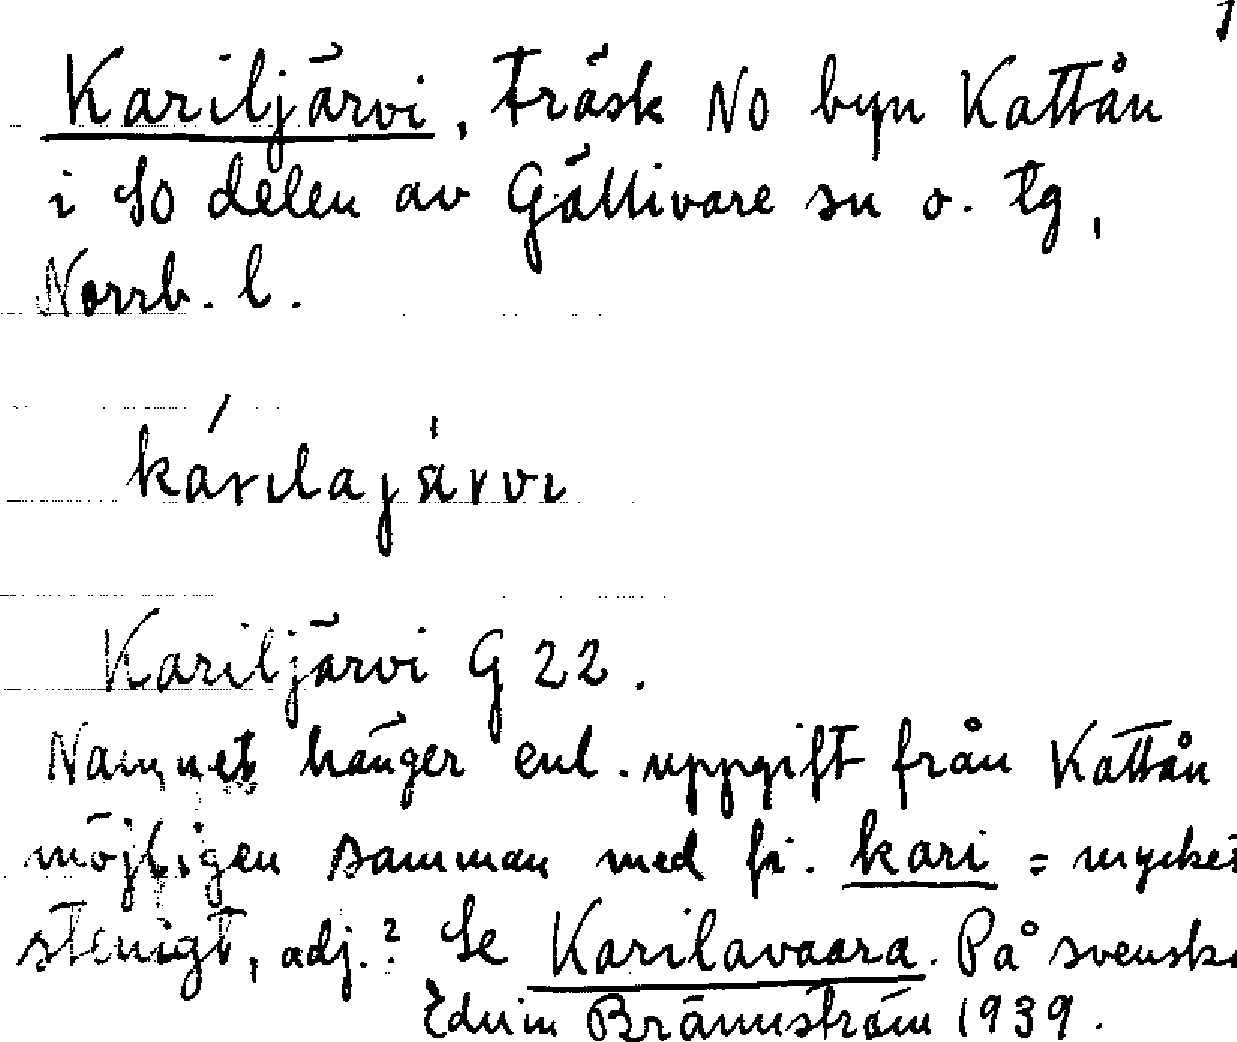 1
Kariljärvi, träsk NO byn Kattån
i SO delen av Gällivare sn o. tg,
Norrb. l.
kárılajä̀rvı
Kariljärvi G 22.
Namnet hänger enl. uppgift från Kattån
möjligen samman med fi. kari = mycket
stenigt, adj.? Se Karilavaara. På svenska
Edvin Brännström 1939.